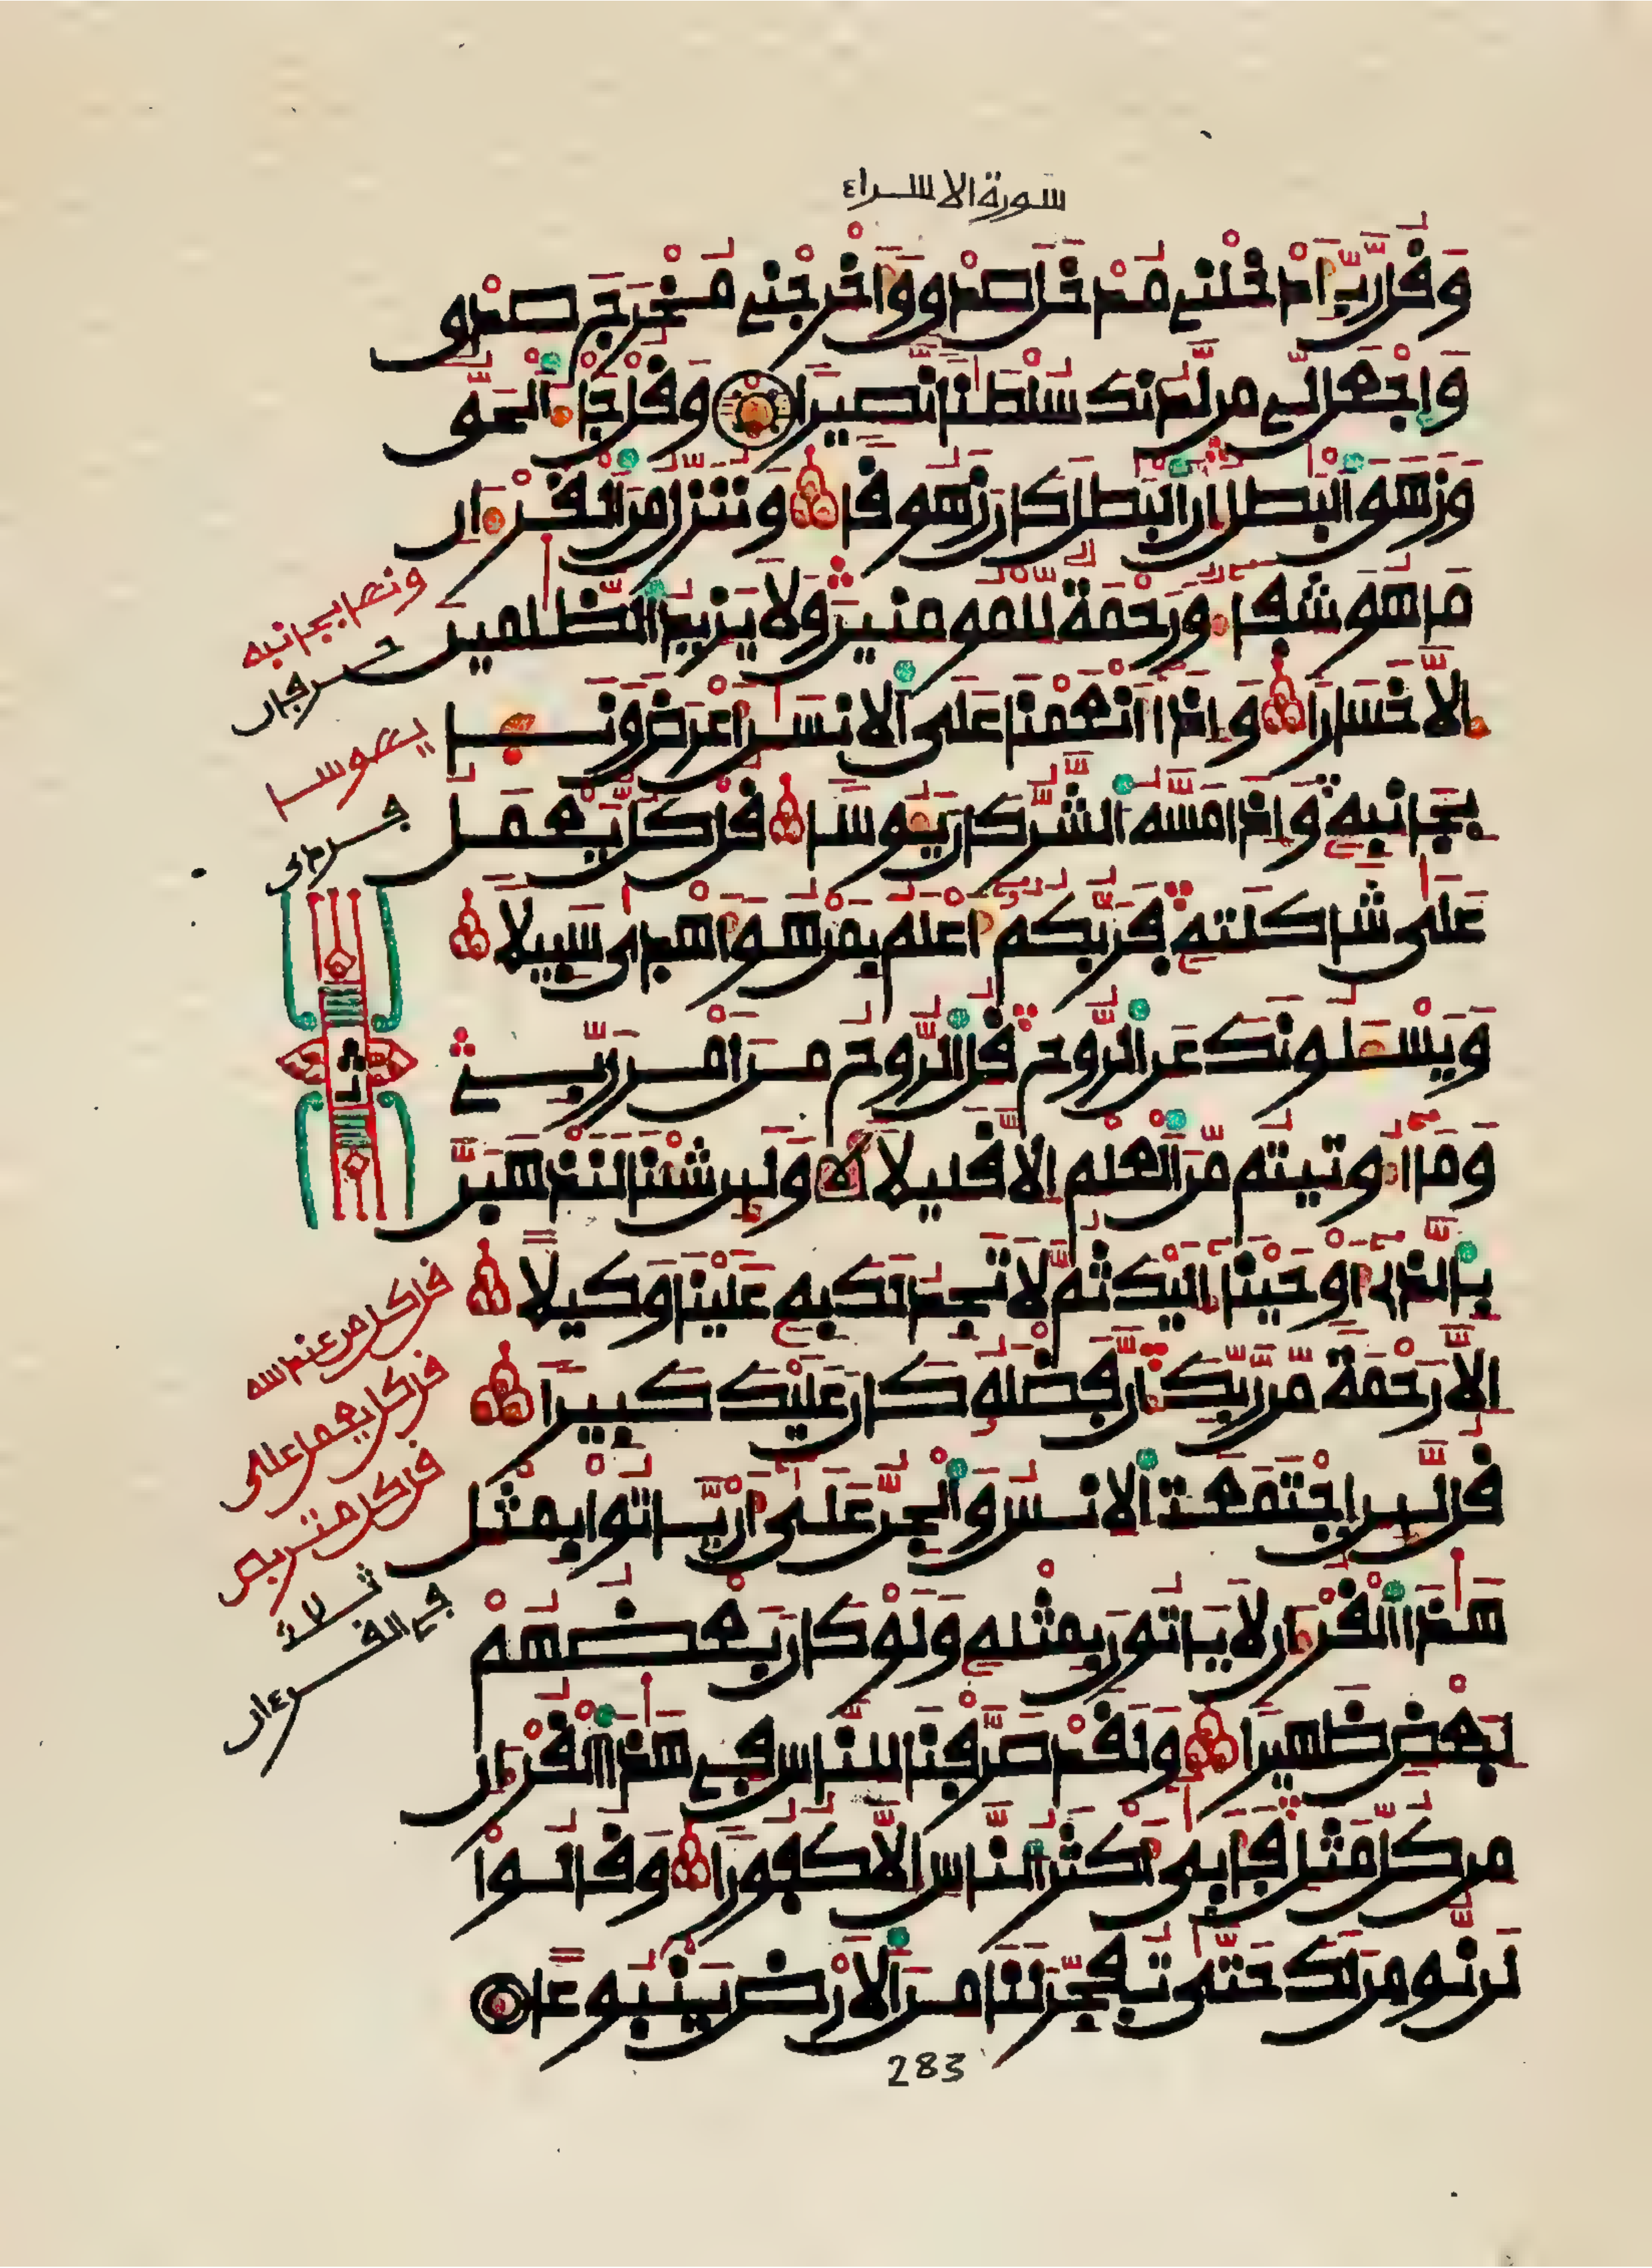 سورة الاسراء
وقل رب ادخلني مدخل صدق واخرجني مخرج صدق
واجعل لي من لدنك سلطنا نصيرا وقل جا الحق
وزهق البطل ان البطل كان زهوقا وننزل من القرءان
ما هو شفا ورحمة للمومنين ولا يزيد الظلمين
الا خسارا واذا انعمنا على الانسن اعرض ونـا
بجانبه واذا مسه الشر كان يـوسا قل كل يعمل
على شاكلته فربكم اعلم بمن هو اهدى سبيلا
ويسـلونك عن الروح قل الروح من امر ربي
وما اوتيتم من العلم الا قليلا ولين شينا لنذهبن
بالذي اوحينا اليك ثم لا تجد لك به علينا وكيلا
الا رحمة من ربك ان فضله كان عليك كبيرا
قل لين اجتمعت الانس والجن على ان ياتوا بمثل
هذا القرءان لا ياتون بمثله ولو كان بعضهم
لبعض ظهيرا ولقد صرفنا للناس في هذا القرءان
من كل مثل فابى اكثر الناس الا كفورا وقالوا
لن نومن لك حتى تفجر لنا من الارض ينبوعا
283
ونـا بجانبه
حرفان
يـوسا
فردى
ثمن
قل كل من عند الله
قل كل يعمل على
قل كل متربص
ثلاث
في القرءان